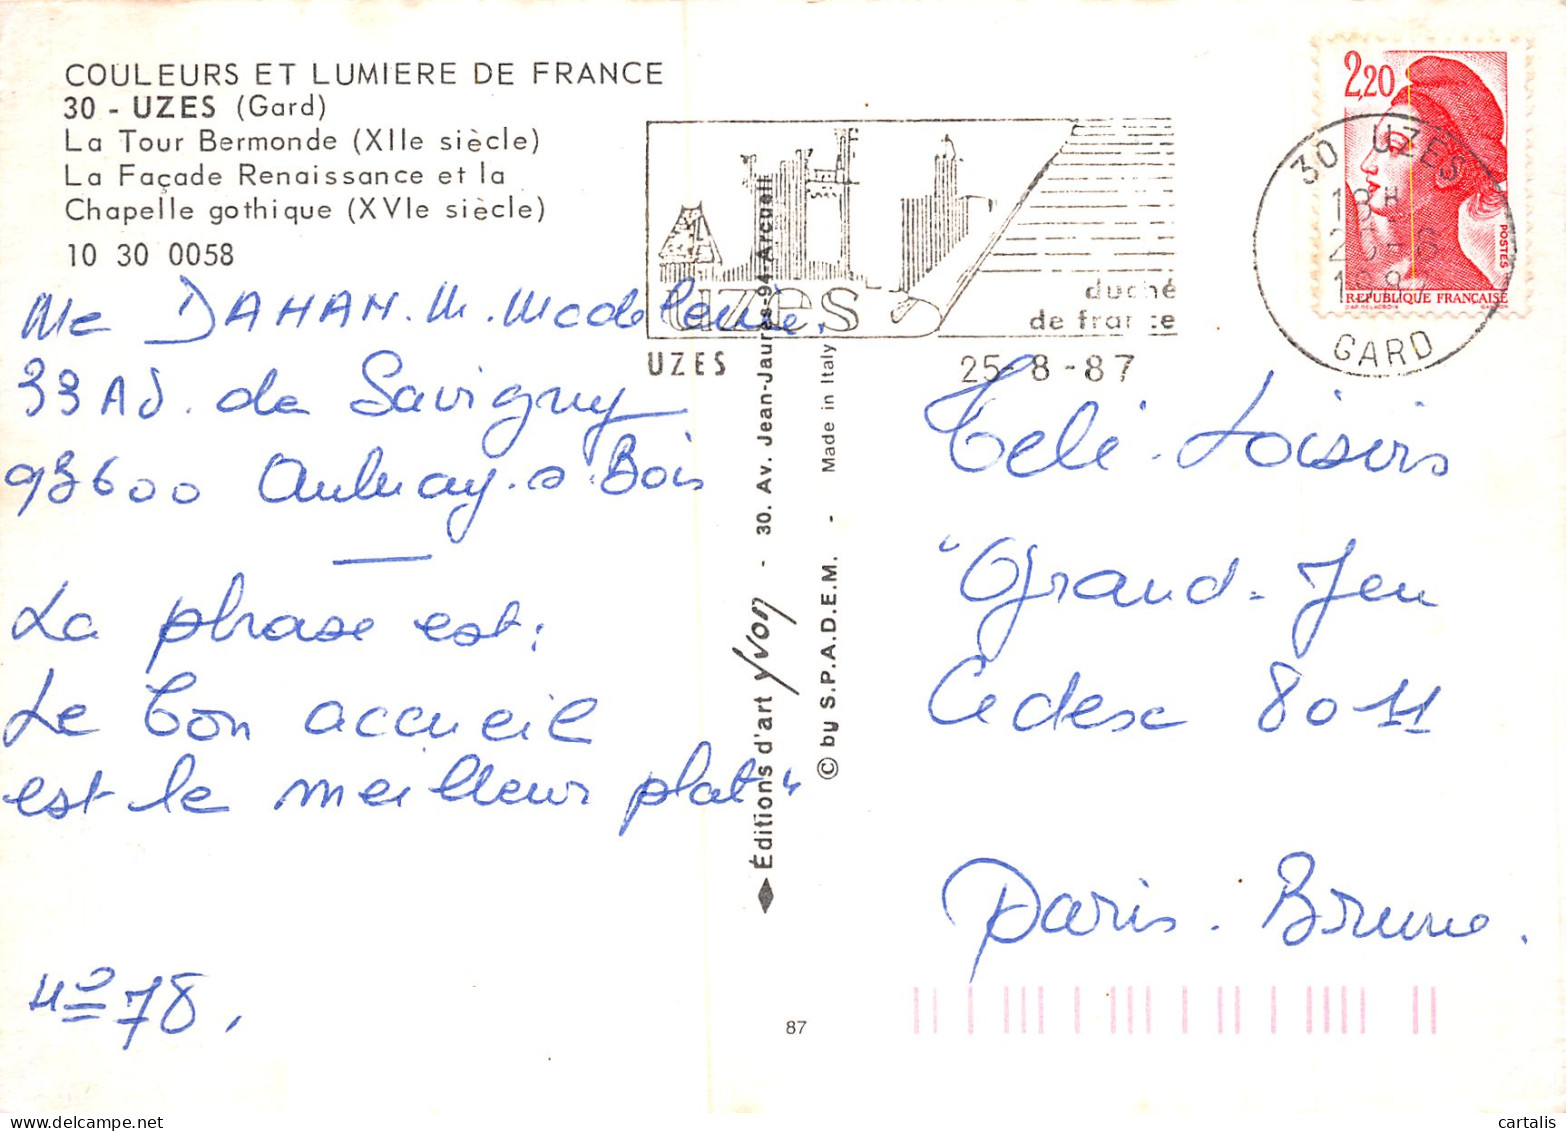 COULEURS ET LUMIERE DE FRANCE
30 - UZES (Gard)
La Tour Bermonde (XIIe siècle)
La Façade Renaissance et la
Chapelle gothique (XVIe siècle)
10 30 0058
Me DAHAN. M. Madeleine.
33 Ad. de Savigny
93600 Aulnay. s. Bois
La phrase est:
Le bon accueil
est le meilleur plat"
Nº 78.
uzes
duché
de france
UZES
25-8-87
◆ Éditions d'art Yvon - 30. Av. Jean-Jaurès-94 Arcueil
© by S.P.A.D.E.M. - Made in Italy
87
2,20
POSTES
REPUBLIQUE FRANÇAISE
30 UZES
18H
25-8
1987
GARD
Télé-Loisirs
"Grand-Jeu
Cedex 8011
Paris. Brune.
cartalis